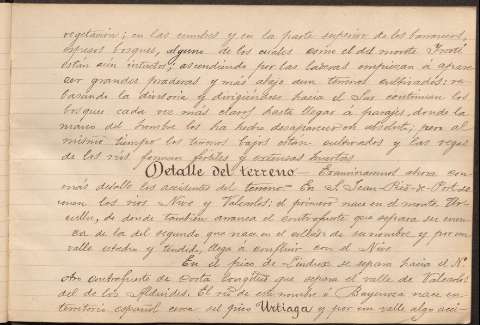 vegetación; en las cumbres y en la parte superior de los barrancos,
espesos bosques, alguno de los cuales como el del monte
están aún intactos; ascendiendo por las laderas empiezan á apare-
cer grandes praderas y más abajo aun terrenos cultivados: re-
basando la divisoria y dirigiéndose hacia el Sur continúan los
bosques cada vez más claros hasta llegar á parajes, donde la
mano del hombre los ha hecho desaparecer en absoluto; pero al
mismo tiempo los terrenos bajos están cultivados y las vegas
de los ríos forman fértiles y extensas huertas.
Detalle del terreno — Examinemos ahora con
más detalle los accidentes del terreno. En el Jean-Pied-de-Port se
unen los ríos Nive y Valcarlos: el primero nace en el monte
de donde también arranca el contrafuerte que separa su cuen-
ca de la del segundo que nace en el collado de su nombre y por un
valle estrecho y llega á confluir con el Nive
En el pico de Lindux se separa hacia el N.
otro contrafuerte de corta longitud que separa el valle de Valcarlos
del de los Alduides. El río de este nombre ó Bayunza nace en
territorio español cerca del pico Urtiaga y por un valle algo acci-